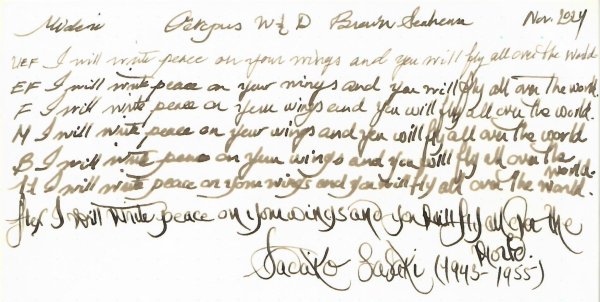 Midori Octopus W&D Brown Seahorse Nov. 2024
UEF I will write peace on your wings and you will fly all over the world
EF I will write peace on your wings and you will fly all over the world.
F I will write peace on your wings and you will fly all over the world.
M I will write peace on your wings and you will fly all over the world
B I will write peace on your wings and you will fly all over the world.
I will write peace on your wings and you will fly all over the world.
flex I will write peace on your wings and you will fly all over the
world.
Sadako Sasaki (1943-1955)